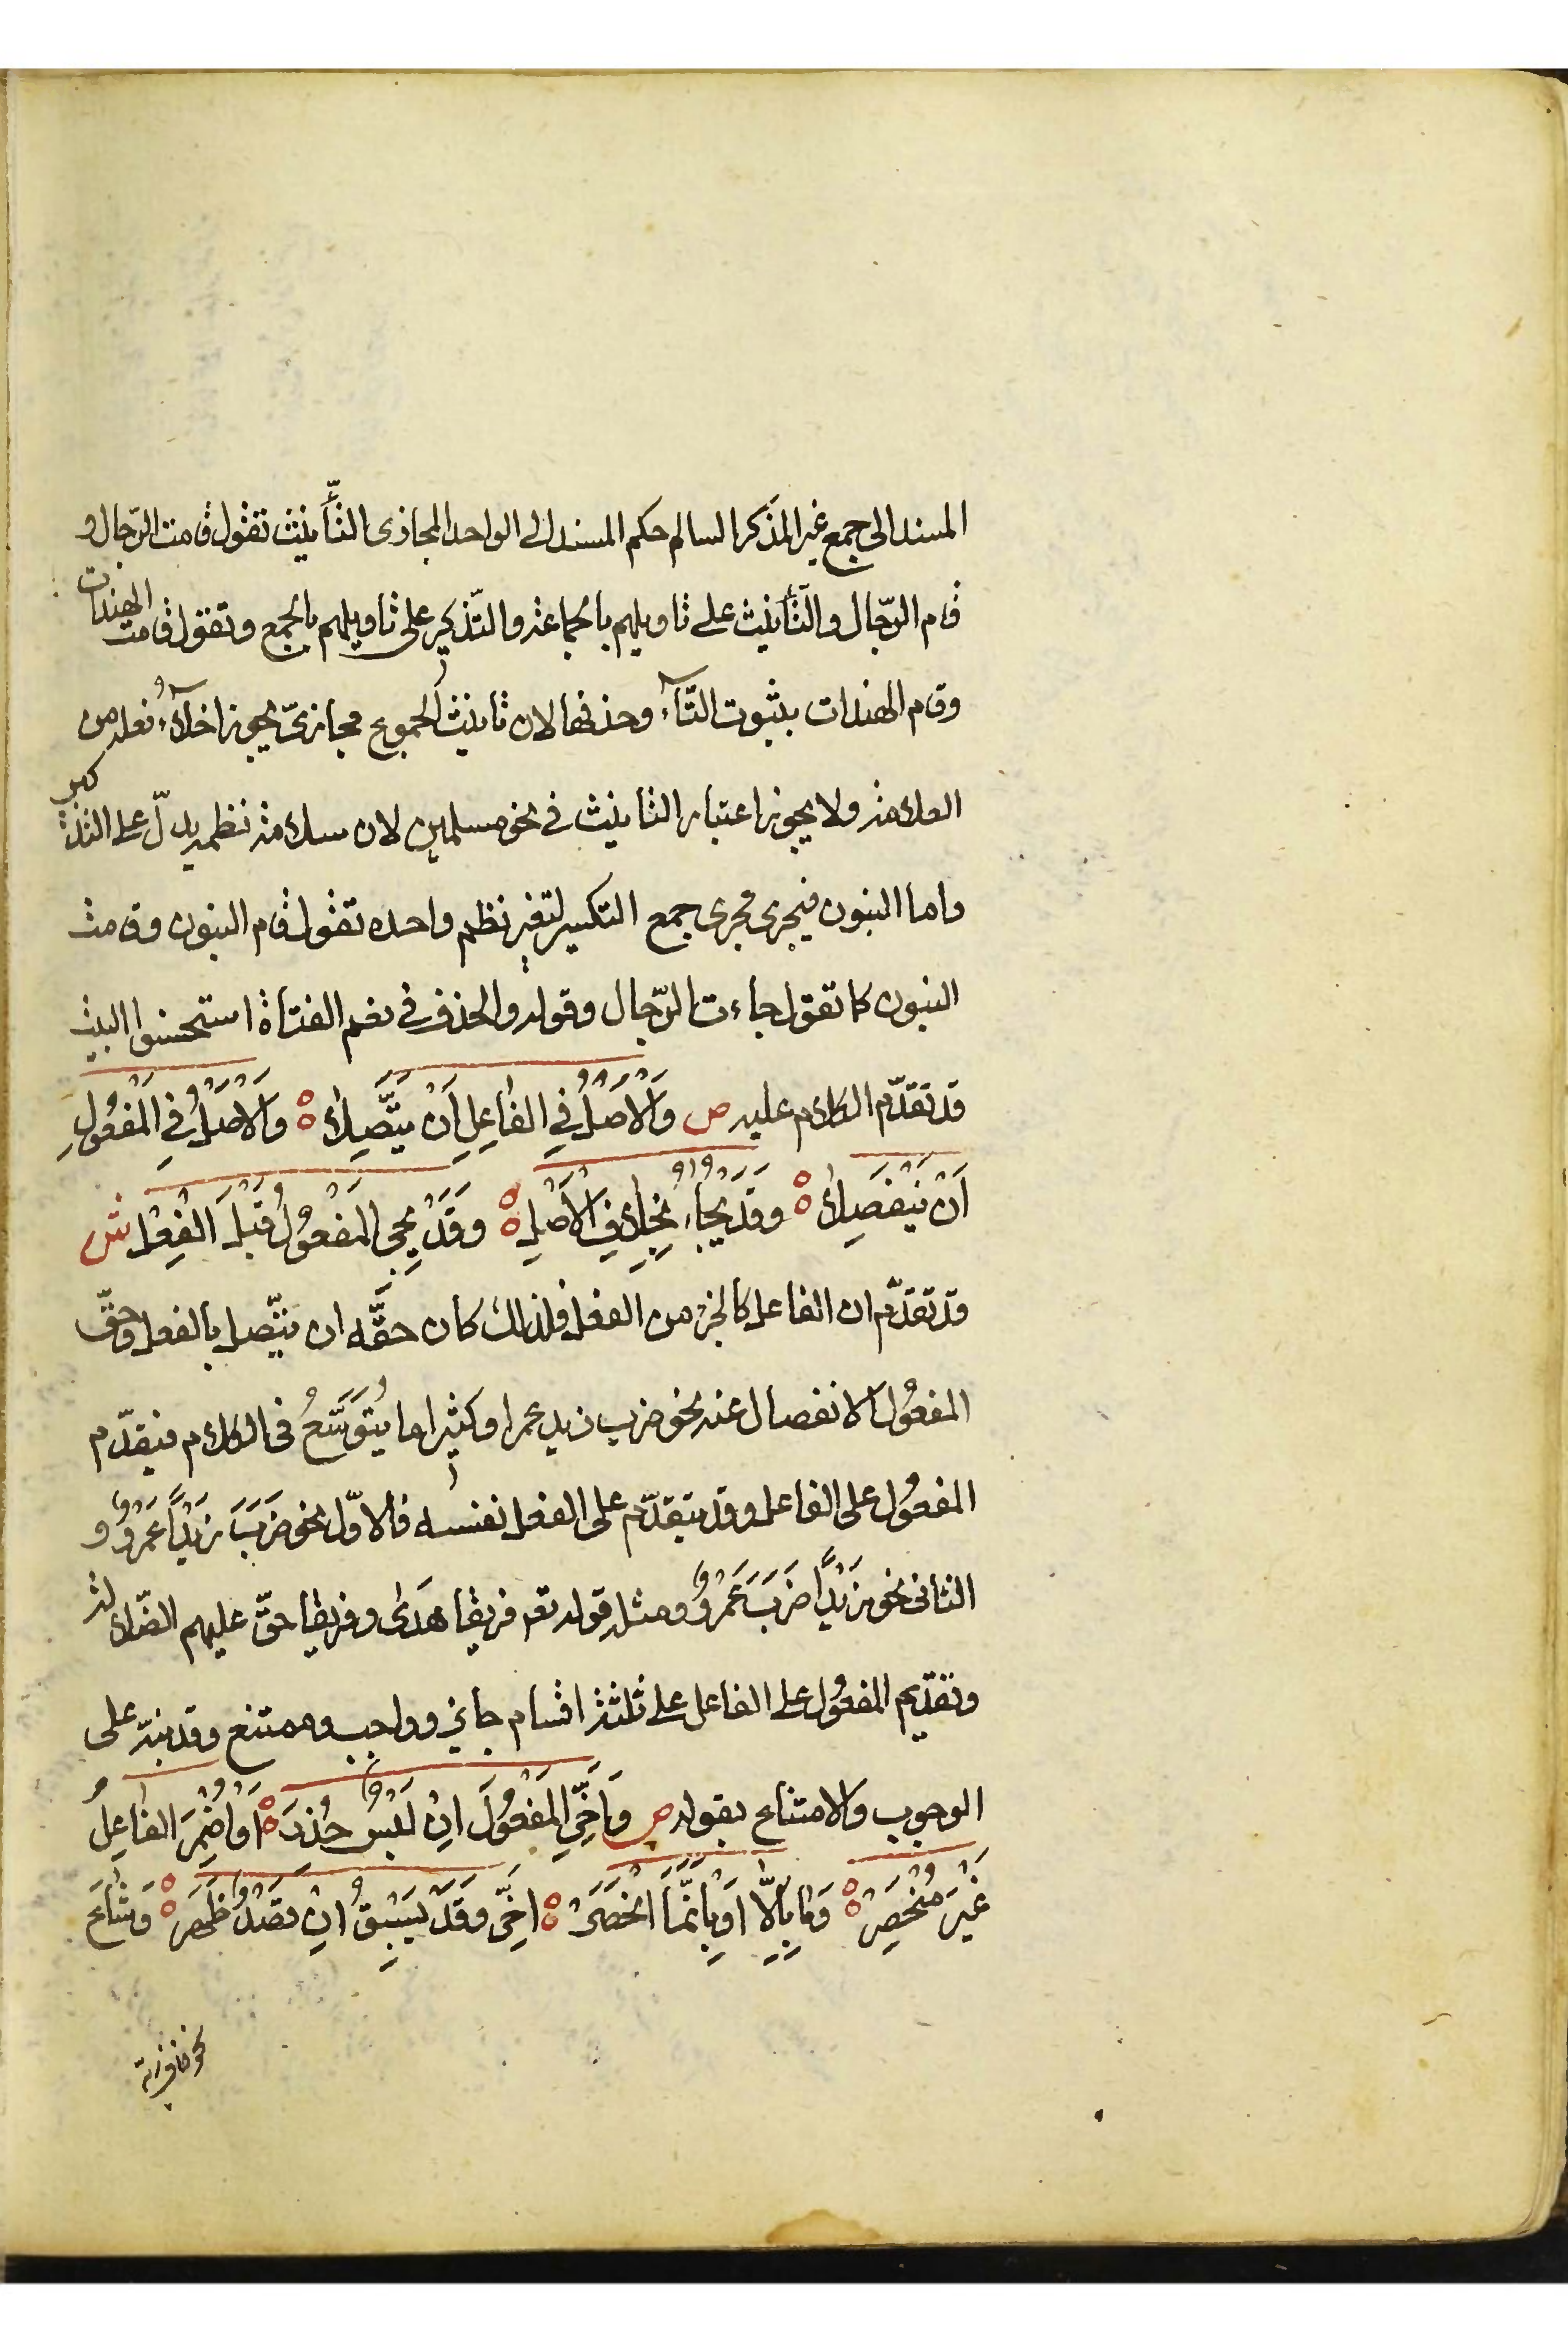 المسند الى جمع غير المذكر السالم حكم المسند الى الواحد المجازى التّأنيث تقول قامت الرّجال و
قام الرّجال والتّأنيث على تاويلهم بالجماعة والتّذكير على تاويلهم بالجمع وتقول قامت الهندات
وقام الهندات بثبوت التّآء وحذفها لان تانيث الجموع مجازىّ يجوز اخلآءُ فعله من
العلامة ولا يجوز اعتبار التانيث فى نحو مسلمين لان سلامة نظمه يدلّ على التذكير
واما البنون فيجرى مجرى جمع التكسير لتغير نظم واحده تقول قام البنون وقامت
البنون كما تقول جاءت الرّجال وقوله والحذف فى نعم الفتاة استحسنوا البيت
قد تقدّم الكلام عليه ص وَالْاَصْلُ فِي الْفاعِلِ اَنْ يَتَّصِلا ۞ وَالْاَصْلُ فِي الْمَفْعُولِ
اَنْ يَنْفَصِلا ۞ وَقَدْ يُجاءُ بِخِلافِ الْاَصْلِ ۞ وَقَدْ يَجِى الْمَفْعُولُ قَبْلَ الْفِعْلِ ش
قد تقدّم ان الفاعل كالجزء من الفعل فلذلك كان حقّه ان يتّصل بالفعل وحقّ
المفعُول الانفصال عنه نحو ضرب زيد عمرا وكثيرا ما يُتَوَسَّعُ فى الكلام فيقدّم
المفعُول على الفاعل وقد يتقدّم على الفعل نفسه فالاوّل نحو ضَرَبَ زَيْدًا عَمْروٌ و
الثانى نحو زَيْدًا ضَرَبَ عَمْروٌ ومثله قوله تع فريقا هَدَى وفريقا حقّ عليهم الضّلالة
وتقديم المفعُول على الفاعل على ثلثة اقسام جايز وواجب وممتنع وقد نبّه على
الوجوب والامتناع بقوله ص وَاَخِّرِ الْمَفْعُولَ اِنْ لَبْسٌ حُذِرَ ۞ اَوْ اُضْمِرَ الْفاعِلُ
غَيْرَ مُنْحَصِرْ ۞ وَما بِاِلّا اَوْ بِاِنَّمَا انْحَصَرْ ۞ اَخِّرْ وَقَدْ يَسْبِقُ اِنْ قَصْدٌ ظَهَرْ ۞ وَشاعَ
نحو خاف ربّه